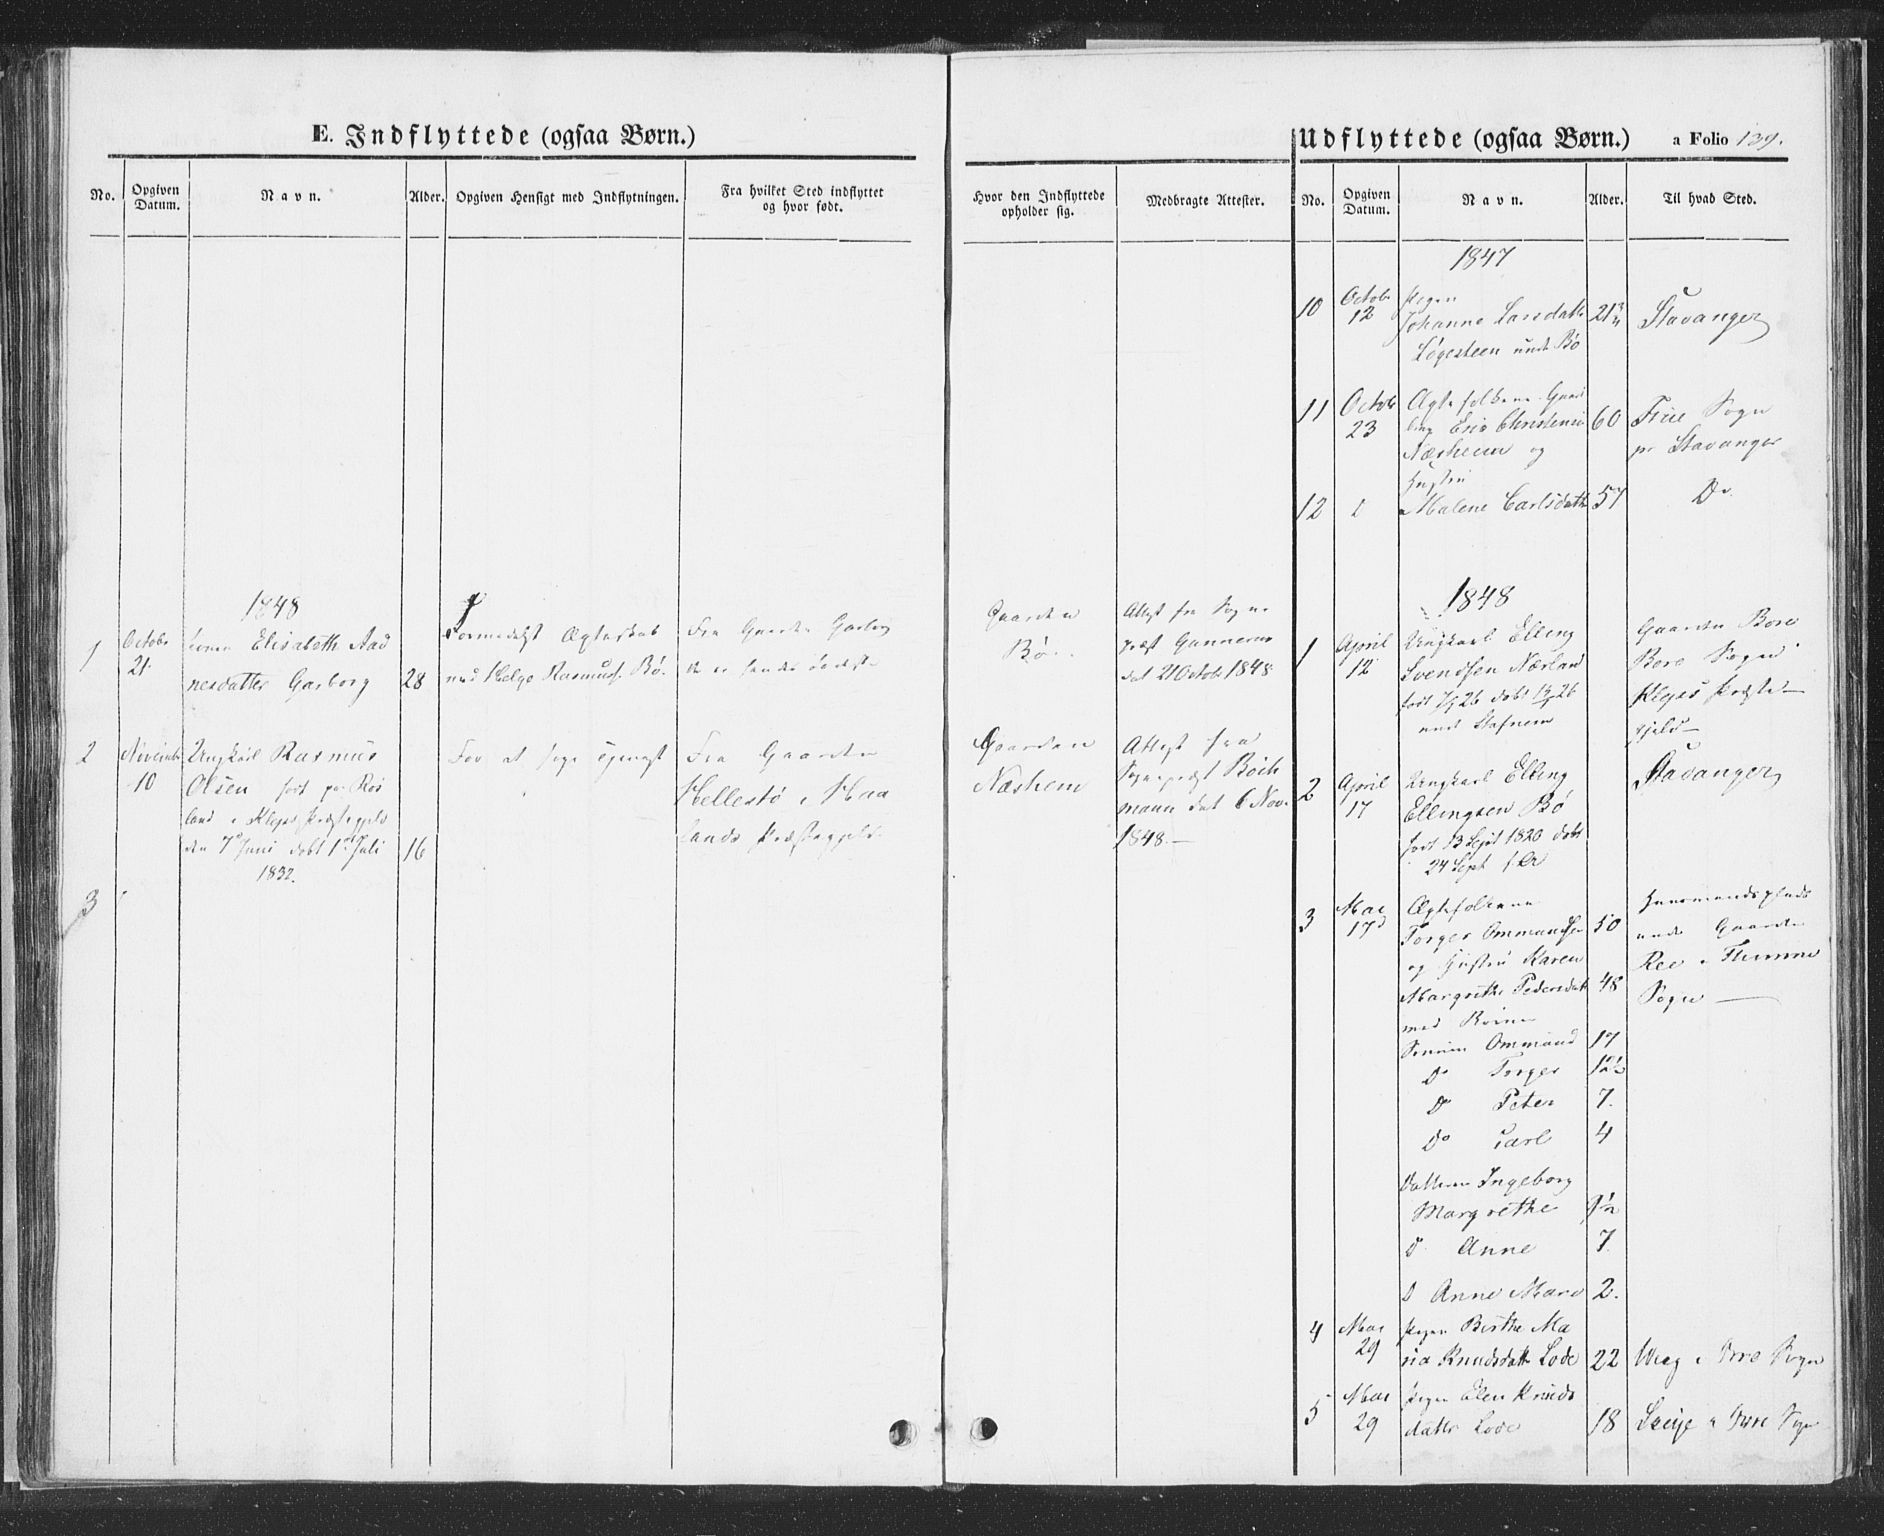 E. Indflyttede (ogsaa Børn.)
No.
Opgiven
Datum.
Navn.
Alder.
Opgiven Hensigt med Indflytningen.
Fra hvilket Sted indflyttet
og hvor født.
Hvor den Indflyttede
opholder sig.
Medbragte Attester.
1848
1
Octobr
21
Elisabeth Aad
nesdatter Garborg
28
Formedelst Ægteskab
med Helge Rasmuss. Bø.
Fra Gaarden Garborg
Gaarden
Bø.
Attest fra Sogne
præst Gunnerus
dat 21 Octobr 1848
2
Novembr
10
Ungkarl Rasmus
Olsen født paa
land i Kleps Præstegjeld
den 7de Juni døbt 1ste Juli
1832.
16
For at søge
Fra Gaarden
Hellestø i Haa
lands Præstegjeld
Gaarden
Næshem
Attest fra
Sognepræst
mann dat 6 Nov.
1848.
3
Udflyttede (ogsaa Børn.)
a Folio 139.
No.
Opgiven
Datum.
Navn.
Alder.
Til hvad Sted.
1847
10
Octobr
12
Pigen
Johanne Larsdatt
Løgesteen undr Bø
21¾
Stavanger
11
Octobr
23
Ægtefolkene Gaard
Christensen
Næsheim og
Hustru
60
Frue Sogn
pr Stavanger
12
D
Malene Carlsdatt
57
Do
1848
1
April
12
Ungkarl Elling
Svendsen Nærland
Gaarden Bore
Bore Sogn
Kleps Præste-
gjeld
2
April
17
Ungkarl Elling
Ellingsen Bø
født 13 Sept 1820 døbt
24 Sept
Stavanger
3
Mai
17d
Ægtefolkene
Torger Ommundsen
50
og Hustru Karen
Margrethe Pedersdatt
48
med Børn
Sønnen Ommund
17
Do Torger
12½
Do Peter
7.
Do Carl
4
Datteren Ingeborg
Margrethe
9½
D Anne
7.
D Anne Mare
2.
Huusmandsplads
under Gaarden
Ree i Thiime
Sogn
4
Mai
29
Pigen Birthe Ma
ria Knudsdatt Lode
22
i Orre Sogn
5
Mai
29
Pigen Elen Knuds
datter Lode
18
i Orre Sogn